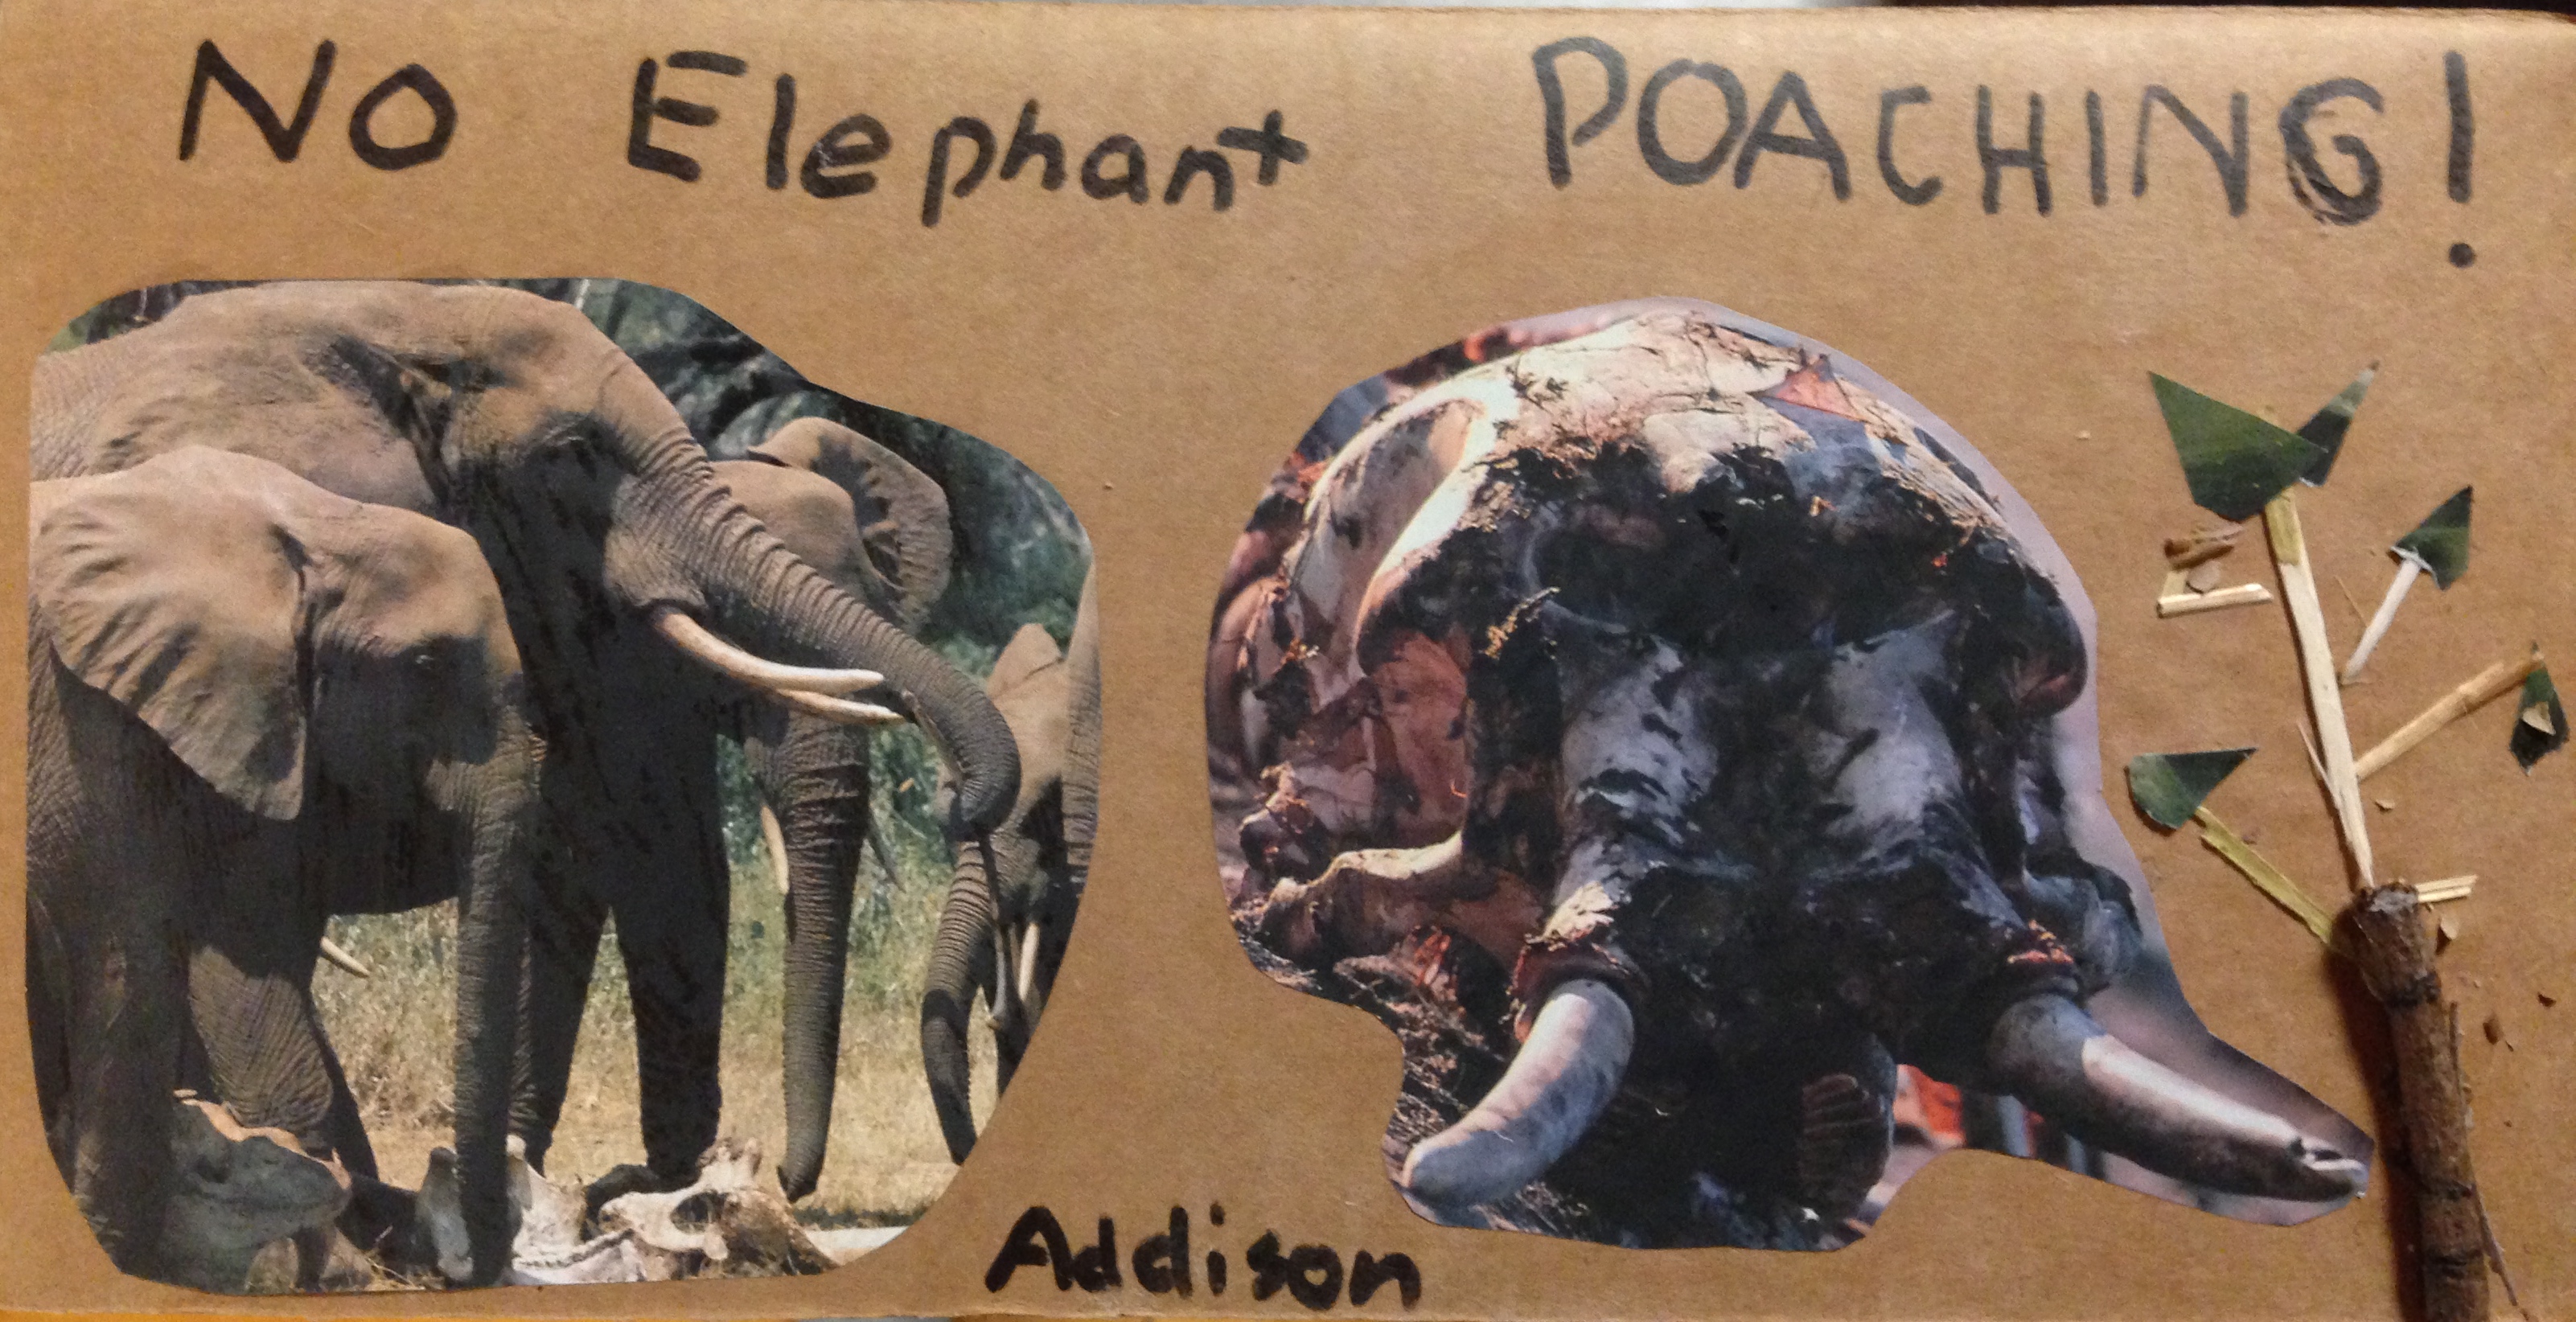 No Elephant POACHING!
Addison